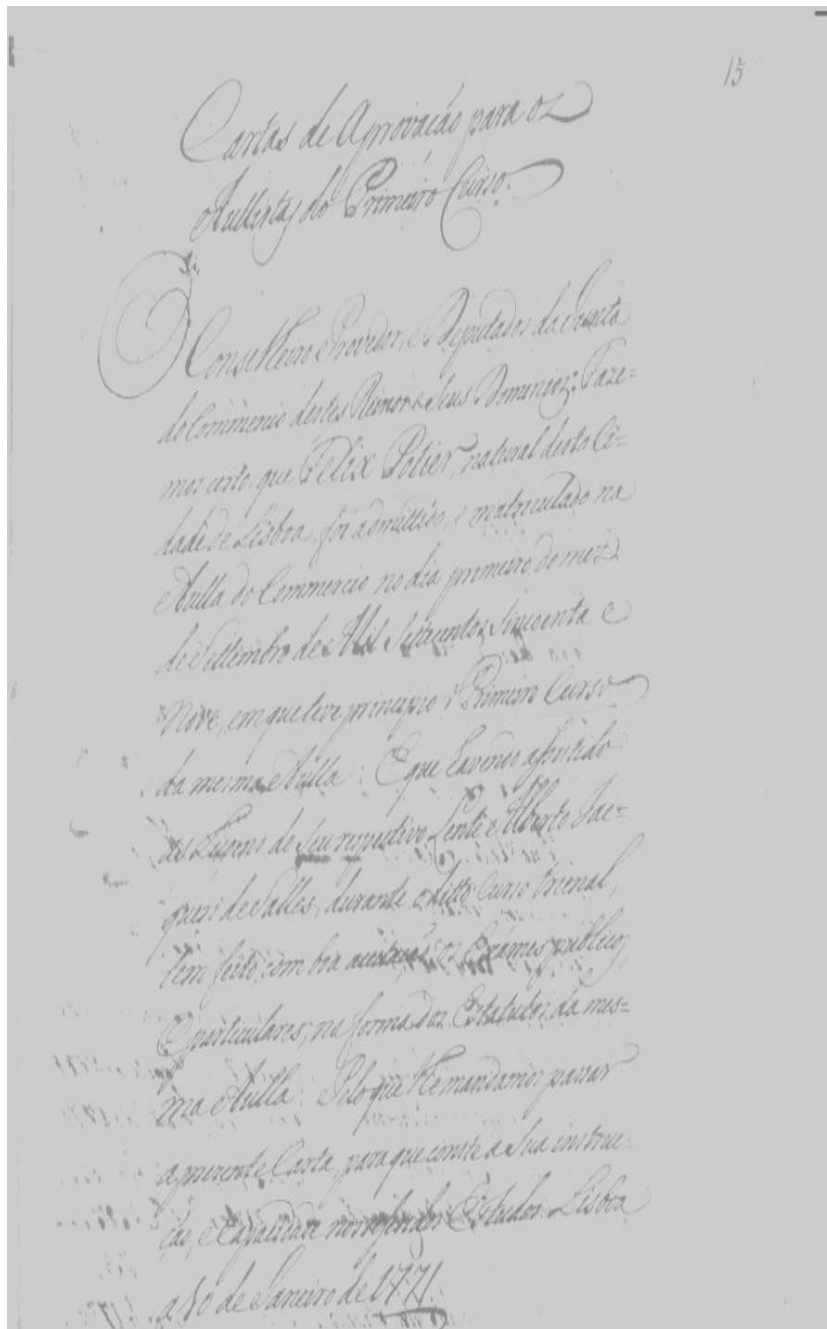 15
Cartas de Aprovação para oz
Aullistas do Primeiro Curso.
O Conselheiro Provedor, e Deputados da Junta
do Commercio destes Reinos e Seus Dominios: Faze=
mos certo, que Felix Potier, natural desta Ci=
dade de Lisboa, foi admittido, e matriculado na
Aulla do Commercio no dia primeiro do mez
de Settembro de Mil Setecentos Sincoenta e
Nove, em que teve principio o Primeiro Curso
da mesma Aulla: E que havendo assistido
às Liçoens do seu respectivo Lente Alberto Jac=
queri de Salles, durante o ditto Curso trienal,
tem feito, com boa aceitação os Exames publicos,
e particulares, na forma dos Estatutos da mes=
ma Aulla: Pelo que lhe mandamos passar
a prezente Carta, para que conste a Sua instruc
ção, e Capacidade nos referidos Estudos. Lisboa
a 10 de Janeiro de 1771.